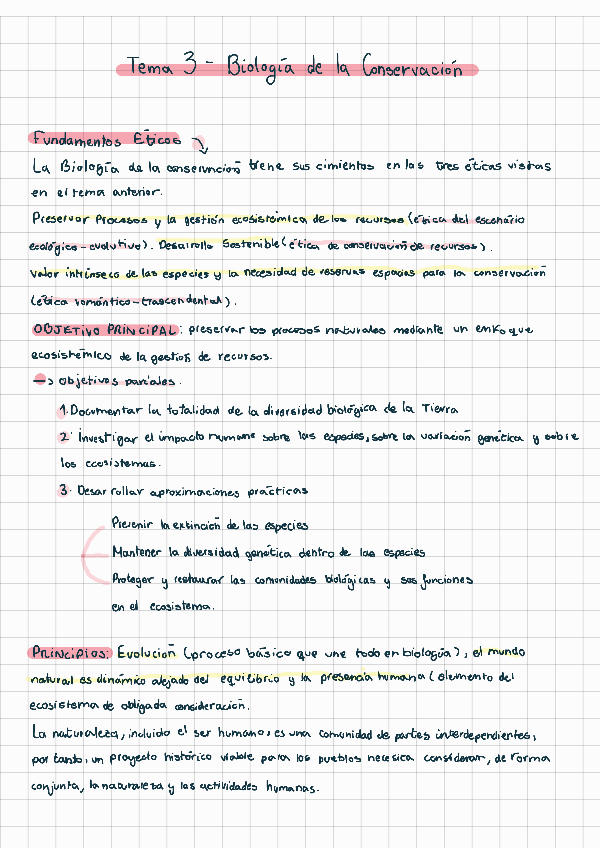 Tema 3 - Biología de la Conservación
Fundamentos Éticos
La Biología de la conservación tiene sus cimientos en las tres éticas vistas
en el tema anterior.
Preservar Procesos y la gestión ecosistémica de los recursos (ética del escenario
ecológico-evolutivo). Desarrollo Sostenible (ética de conservación de recursos).
Valor intrínseco de las especies y la necesidad de reservas espacios para la conservación
(ética romántico-trascendental).
OBJETIVO PRINCIPAL: preservar los procesos naturales mediante un enfoque
ecosistémico de la gestión de recursos.
→ objetivos parciales.
1. Documentar la totalidad de la diversidad biológica de la Tierra
2. Investigar el impacto humano sobre las especies, sobre la variación genética y sobre
los ecosistemas.
3. Desarrollar aproximaciones prácticas
Prevenir la extinción de las especies
Mantener la diversidad genética dentro de las especies
Proteger y restaurar las comunidades biológicas y sus funciones
en el ecosistema.
PRINCIPIOS: Evolución (proceso básico que une todo en biología), el mundo
natural es dinámico alejado del equilibrio y la presencia humana (elemento del
ecosistema de obligada consideración.
La naturaleza, incluido el ser humano, es una comunidad de partes interdependientes,
por tanto, un proyecto histórico viable para los pueblos necesita considerar, de forma
conjunta, la naturaleza y las actividades humanas.